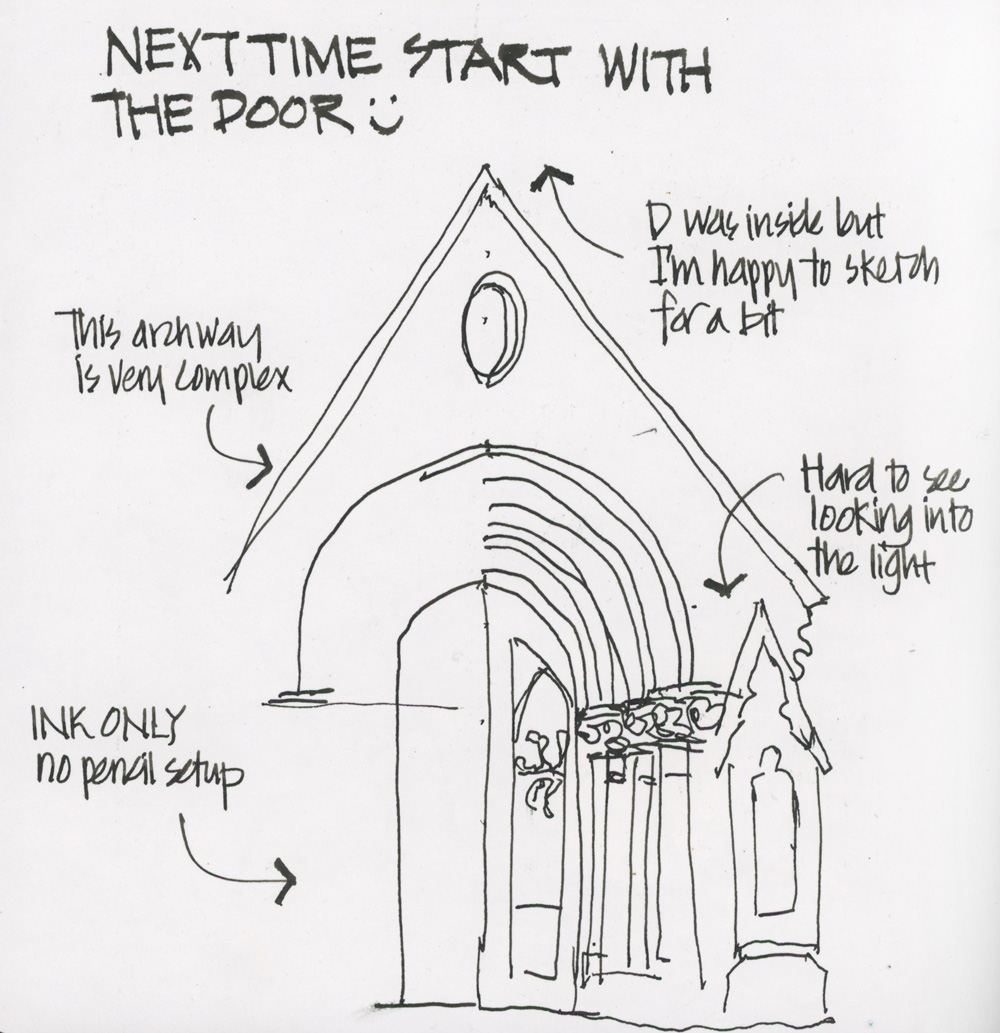 NEXT TIME START WITH
THE DOOR :)
D was inside but
I'm happy to sketch
for a bit
This archway
is very complex
Hard to see
looking into
the light
INK ONLY
no pencil setup